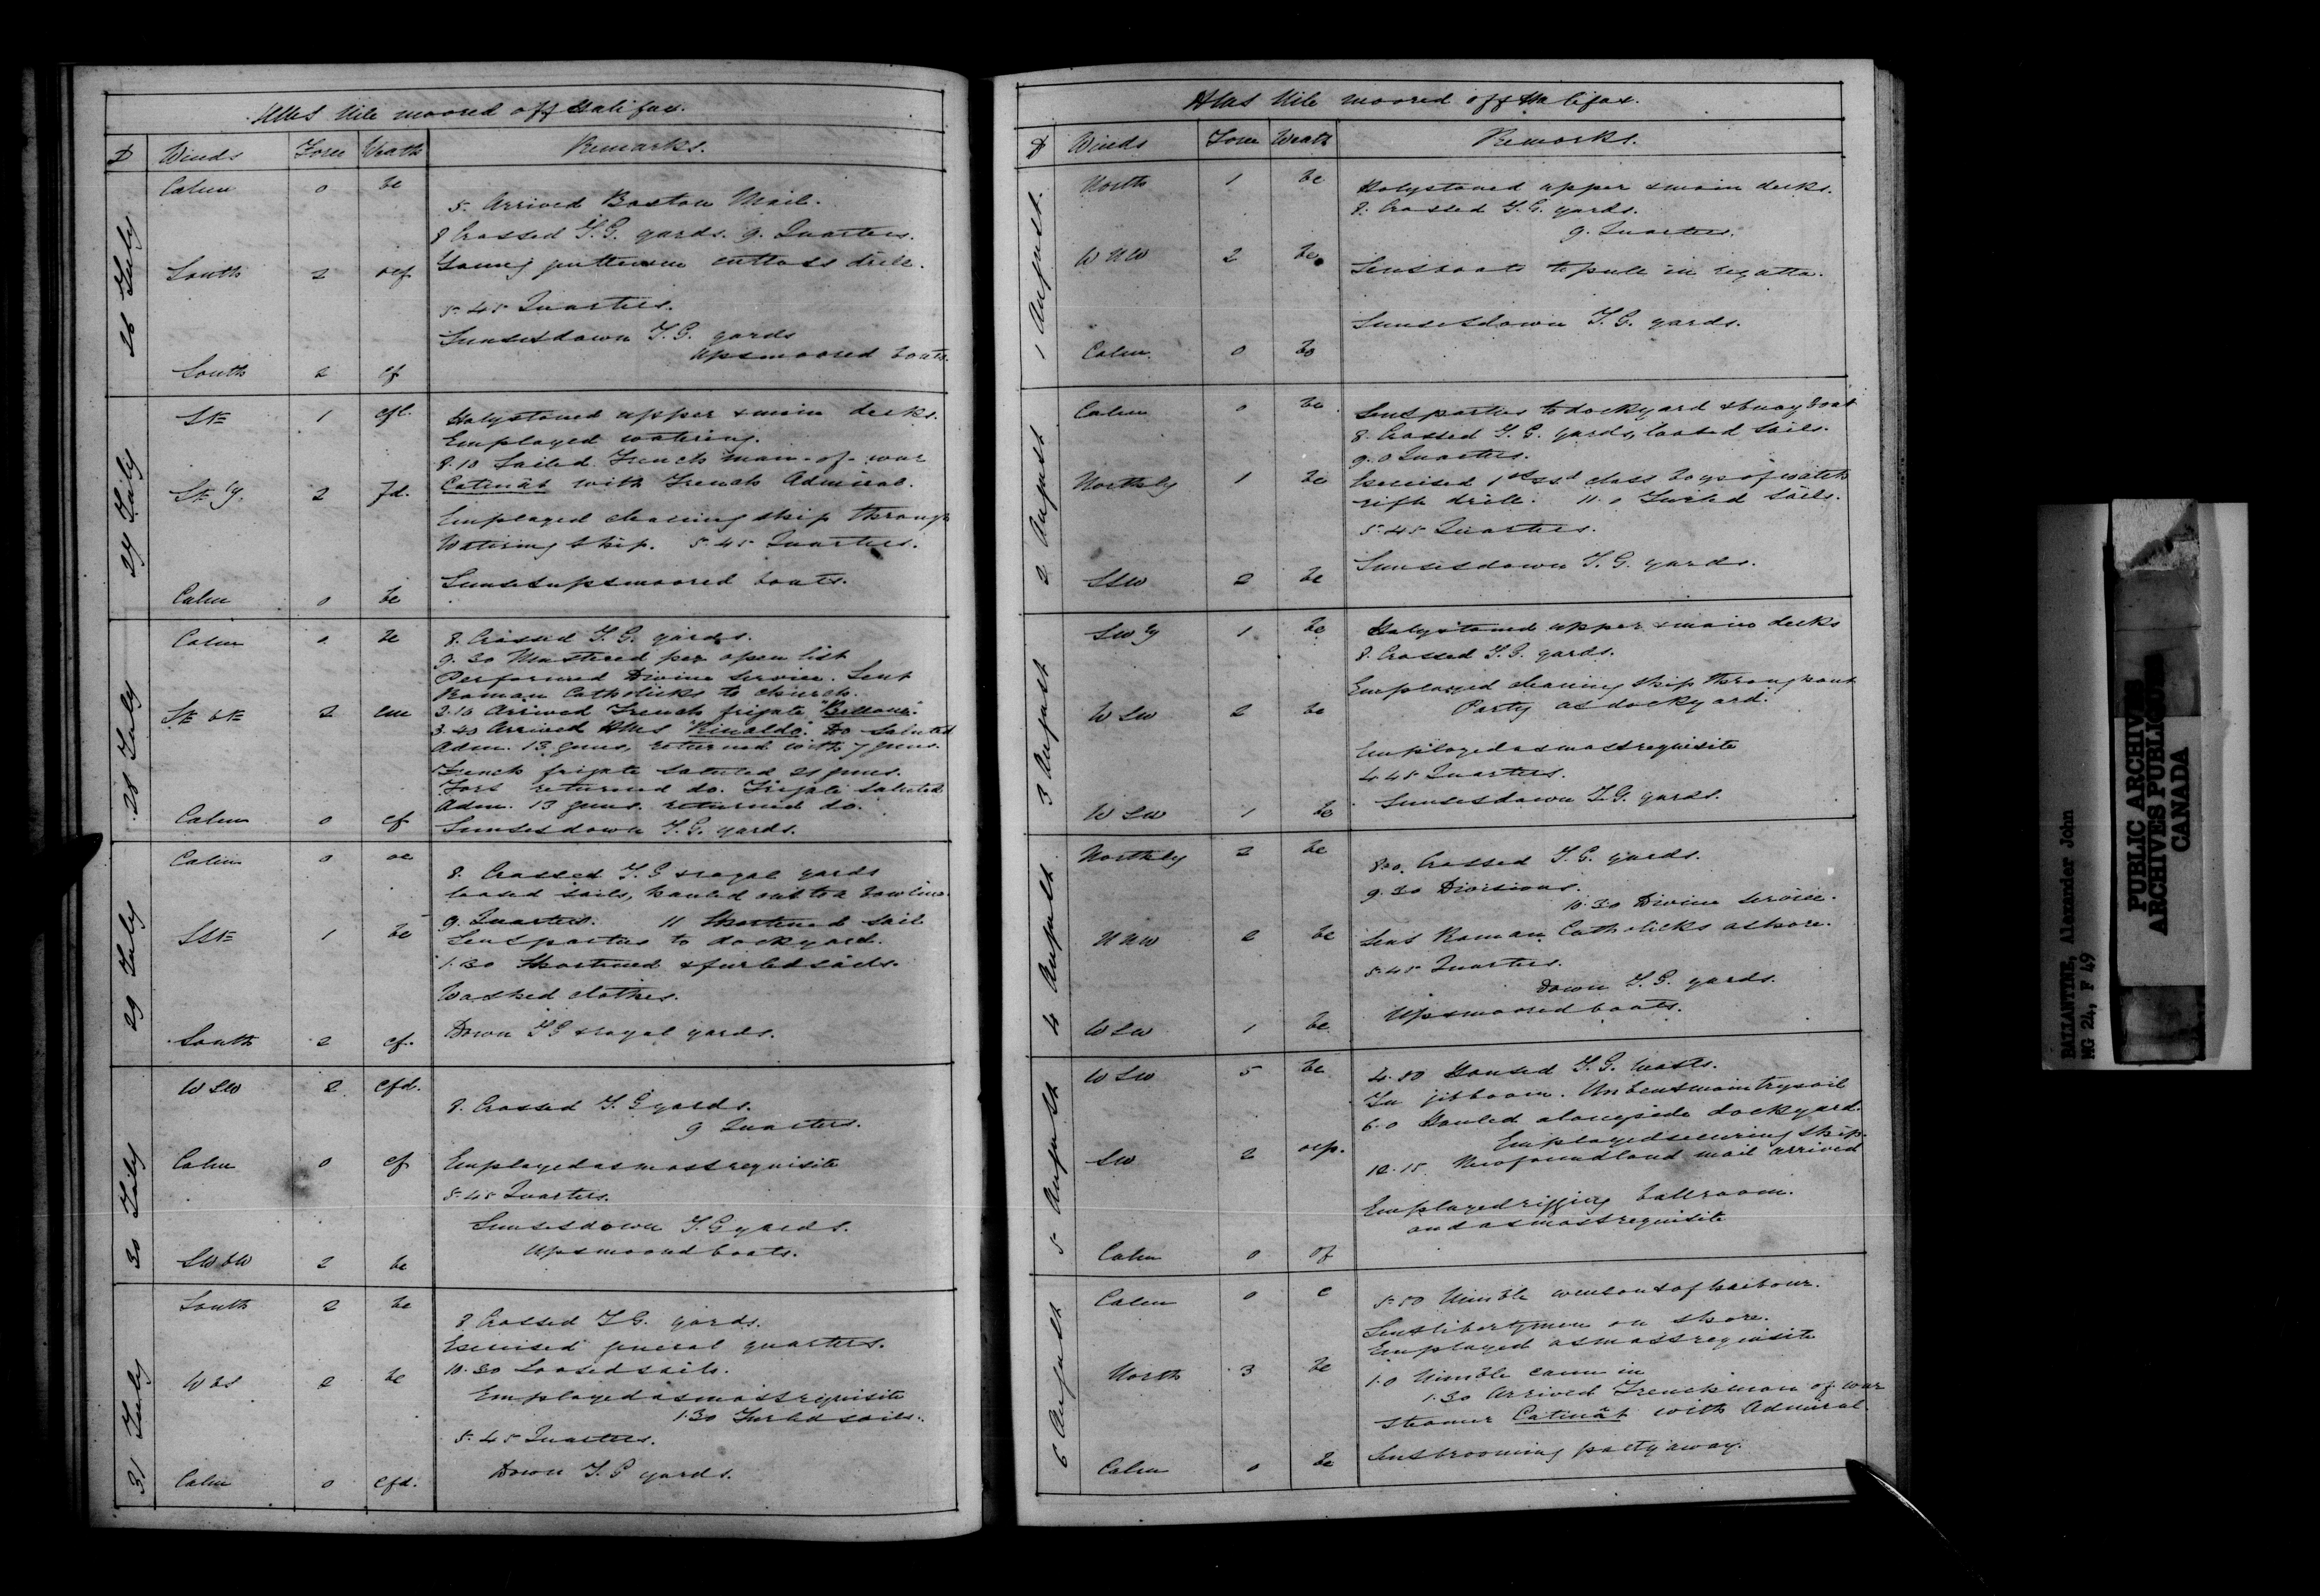 HMS Nile moored off Halifax.
D Winds Force Weath Remarks.
26 July
Calm 0 bc
5. Arrived Boston Mail.
8 Crossed T.G. yards. 9. Quarters.
South 2 ocf
Young gentlemen cutlass drill.
5.45 Quarters.
Sunset down T.G. yards
Up & moored boats.
South 2 cf
27 July
SE 1 cfl.
Holystoned upper & main decks.
Employed watering.
8.10 Sailed French man-of-war
SE'ly. 2 fd.
Catinât with French Admiral.
Employed cleaning ship through
Watering ship. 5.45 Quarters.
Sunset up & moored boats.
Calm 0 bc
28 July
Calm 0 bc
8. Crossed T.G. yards.
9.30 Mustered per open list
Performed Divine Service. Sent
Roman Catholicks to church.
SE b E 2 cm
2.10 Arrived French frigate "Bellone".
3.40 Arrived HMS "Rinaldo". Do saluted
Adm. 13 guns, returned with 7 guns.
French frigate saluted 21 guns.
Fort returned do. Frigate saluted
Adm. 13 guns. returned do.
Calm 0 cf
Sunset down T.G. yards.
29 July
Calm 0 oc
8. Crossed T.G & royal yards
loosed sails, hauled out to a bowline.
9. Quarters. 11 Shortened sail
SSE 1 bc
Sent parties to dockyard.
1.30 Shortened & furled sails.
Washed clothes.
South 2 cf.
Down TG & royal yards.
30 July
WSW 2 cfd.
8. Crossed T.G yards.
9 Quarters.
Calm 0 cf
Employed as most requisite
5.45 Quarters.
Sunset down T.G yards.
Up & moored boats.
SW b W 2 bc
31 July
South 2 bc
8 Crossed T.G. yards.
Exercised general quarters.
10.30 Loosed sails.
W b S 2 bc
Employed as most requisite
1.30 Furled sails.
5.45 Quarters.
Down T.G yards.
Calm 0 cfd.
HMS Nile moored off Halifax.
D Winds Force Weath Remarks.
1 August.
North 1 bc
Holystoned upper & main decks.
8. Crossed T.G. yards.
9. Quarters.
WNW 2 bc
Sent boats to pull in regatta.
Sunset down T.G. yards.
Calm 0 bc
2 August
Calm 0 bc
Sent parties to dockyard & buoy boat
8. Crossed T.G. yards, loosed sails.
9.0 Quarters.
Northly 1 bc
Exercised 1st & 2d class boys of watch
rifle drill. 11.0 Furled sails.
5.45 Quarters.
SSW 2 bc
Sunset down T.G. yards.
3 August
SW'y 1 bc
Holystoned upper & main decks
8. Crossed T.G. yards.
Employed cleaning ship throughout
WSW 2 bc
Party at dockyard.
Employed as most requisite
4.45 Quarters.
WSW 1 bc
Sunset down T.G. yards.
4 August
Northly 2 bc
8.0. Crossed T.G. yards.
9.30 Divisions.
10.30 Divine Service.
NNW 2 bc
Sent Roman Catholicks ashore.
5.45 Quarters.
Down T.G. yards.
WSW 1 bc
Up & moored boats.
5 August
WSW 5 bc
4.50 Housed T.G. masts.
In jibboom. Unbent main trysail
6.0 Hauled alongside dockyard.
Employed securing ship.
SW 2 ocp.
10.15. Newfoundland mail arrived
Employed rigging ballroom.
and as most requisite
Calm 0 of
6 August
Calm 0 c
5.50 Nimble went out of harbour.
Sent liberty men on shore.
Employed as most requisite
North 3 bc
1.0 Nimble came in
1.30 Arrived French man of war
steamer Catinât with Admiral
Calm 0 bc
Sent brooming party away.
BALLANTINE, Alexander John
MG 24, F 49
PUBLIC ARCHIVES
ARCHIVES PUBLIQUES
CANADA